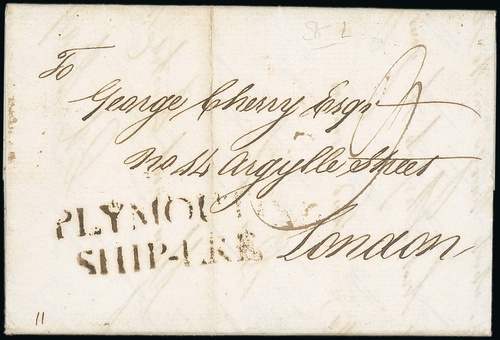 To
George Cherry Esqr
No 14 Argylle Street
London
PLYMOUTH
SHIP-LRE
11